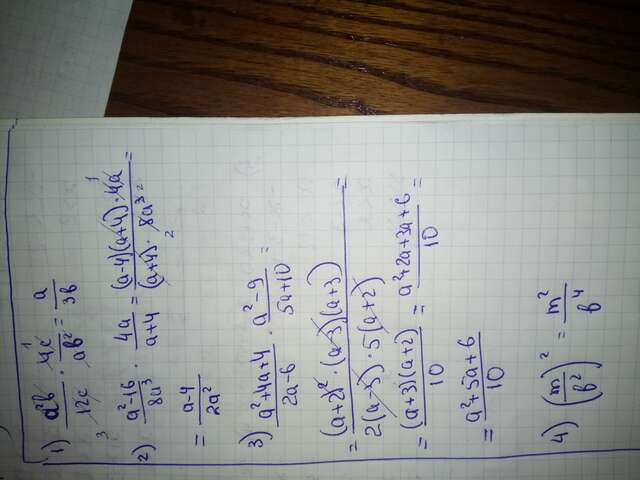 1) a²b/12c · 4c/ab² = a/3b
3 1
2) a²-16/8a³ · 4a/a+4 = (a-4)(a+4)·4a/(a+4)·8a³ =
1 2 2
= a-4/2a²
3) a²+4a+4/2a-6 · a²-9/5a+10 =
= (a+2)²·(a-3)(a+3)/2(a-3)·5(a+2) =
= (a+3)(a+2)/10 = a²+2a+3a+6/10 =
= a²+5a+6/10
4) (m/b²)² = m²/b⁴